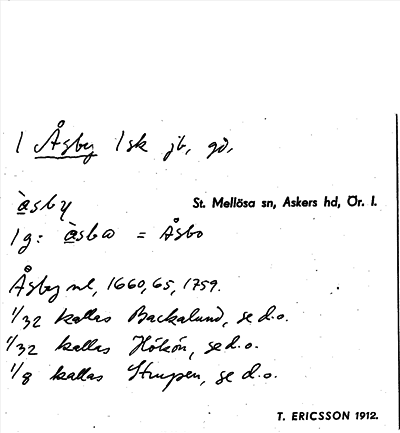 1 Åsby 1sk jb, gd.
àsby
St. Mellösa sn, Askers hd, Ör. l.
1g: àsbω = Åsbo
Åsby ml, 1660, 65, 1759.
1/32 kallas Backalund, se d.o.
1/32 kallas Hökön, se d.o.
1/8 kallas Strupen, se d.o.
T. ERICSSON 1912.